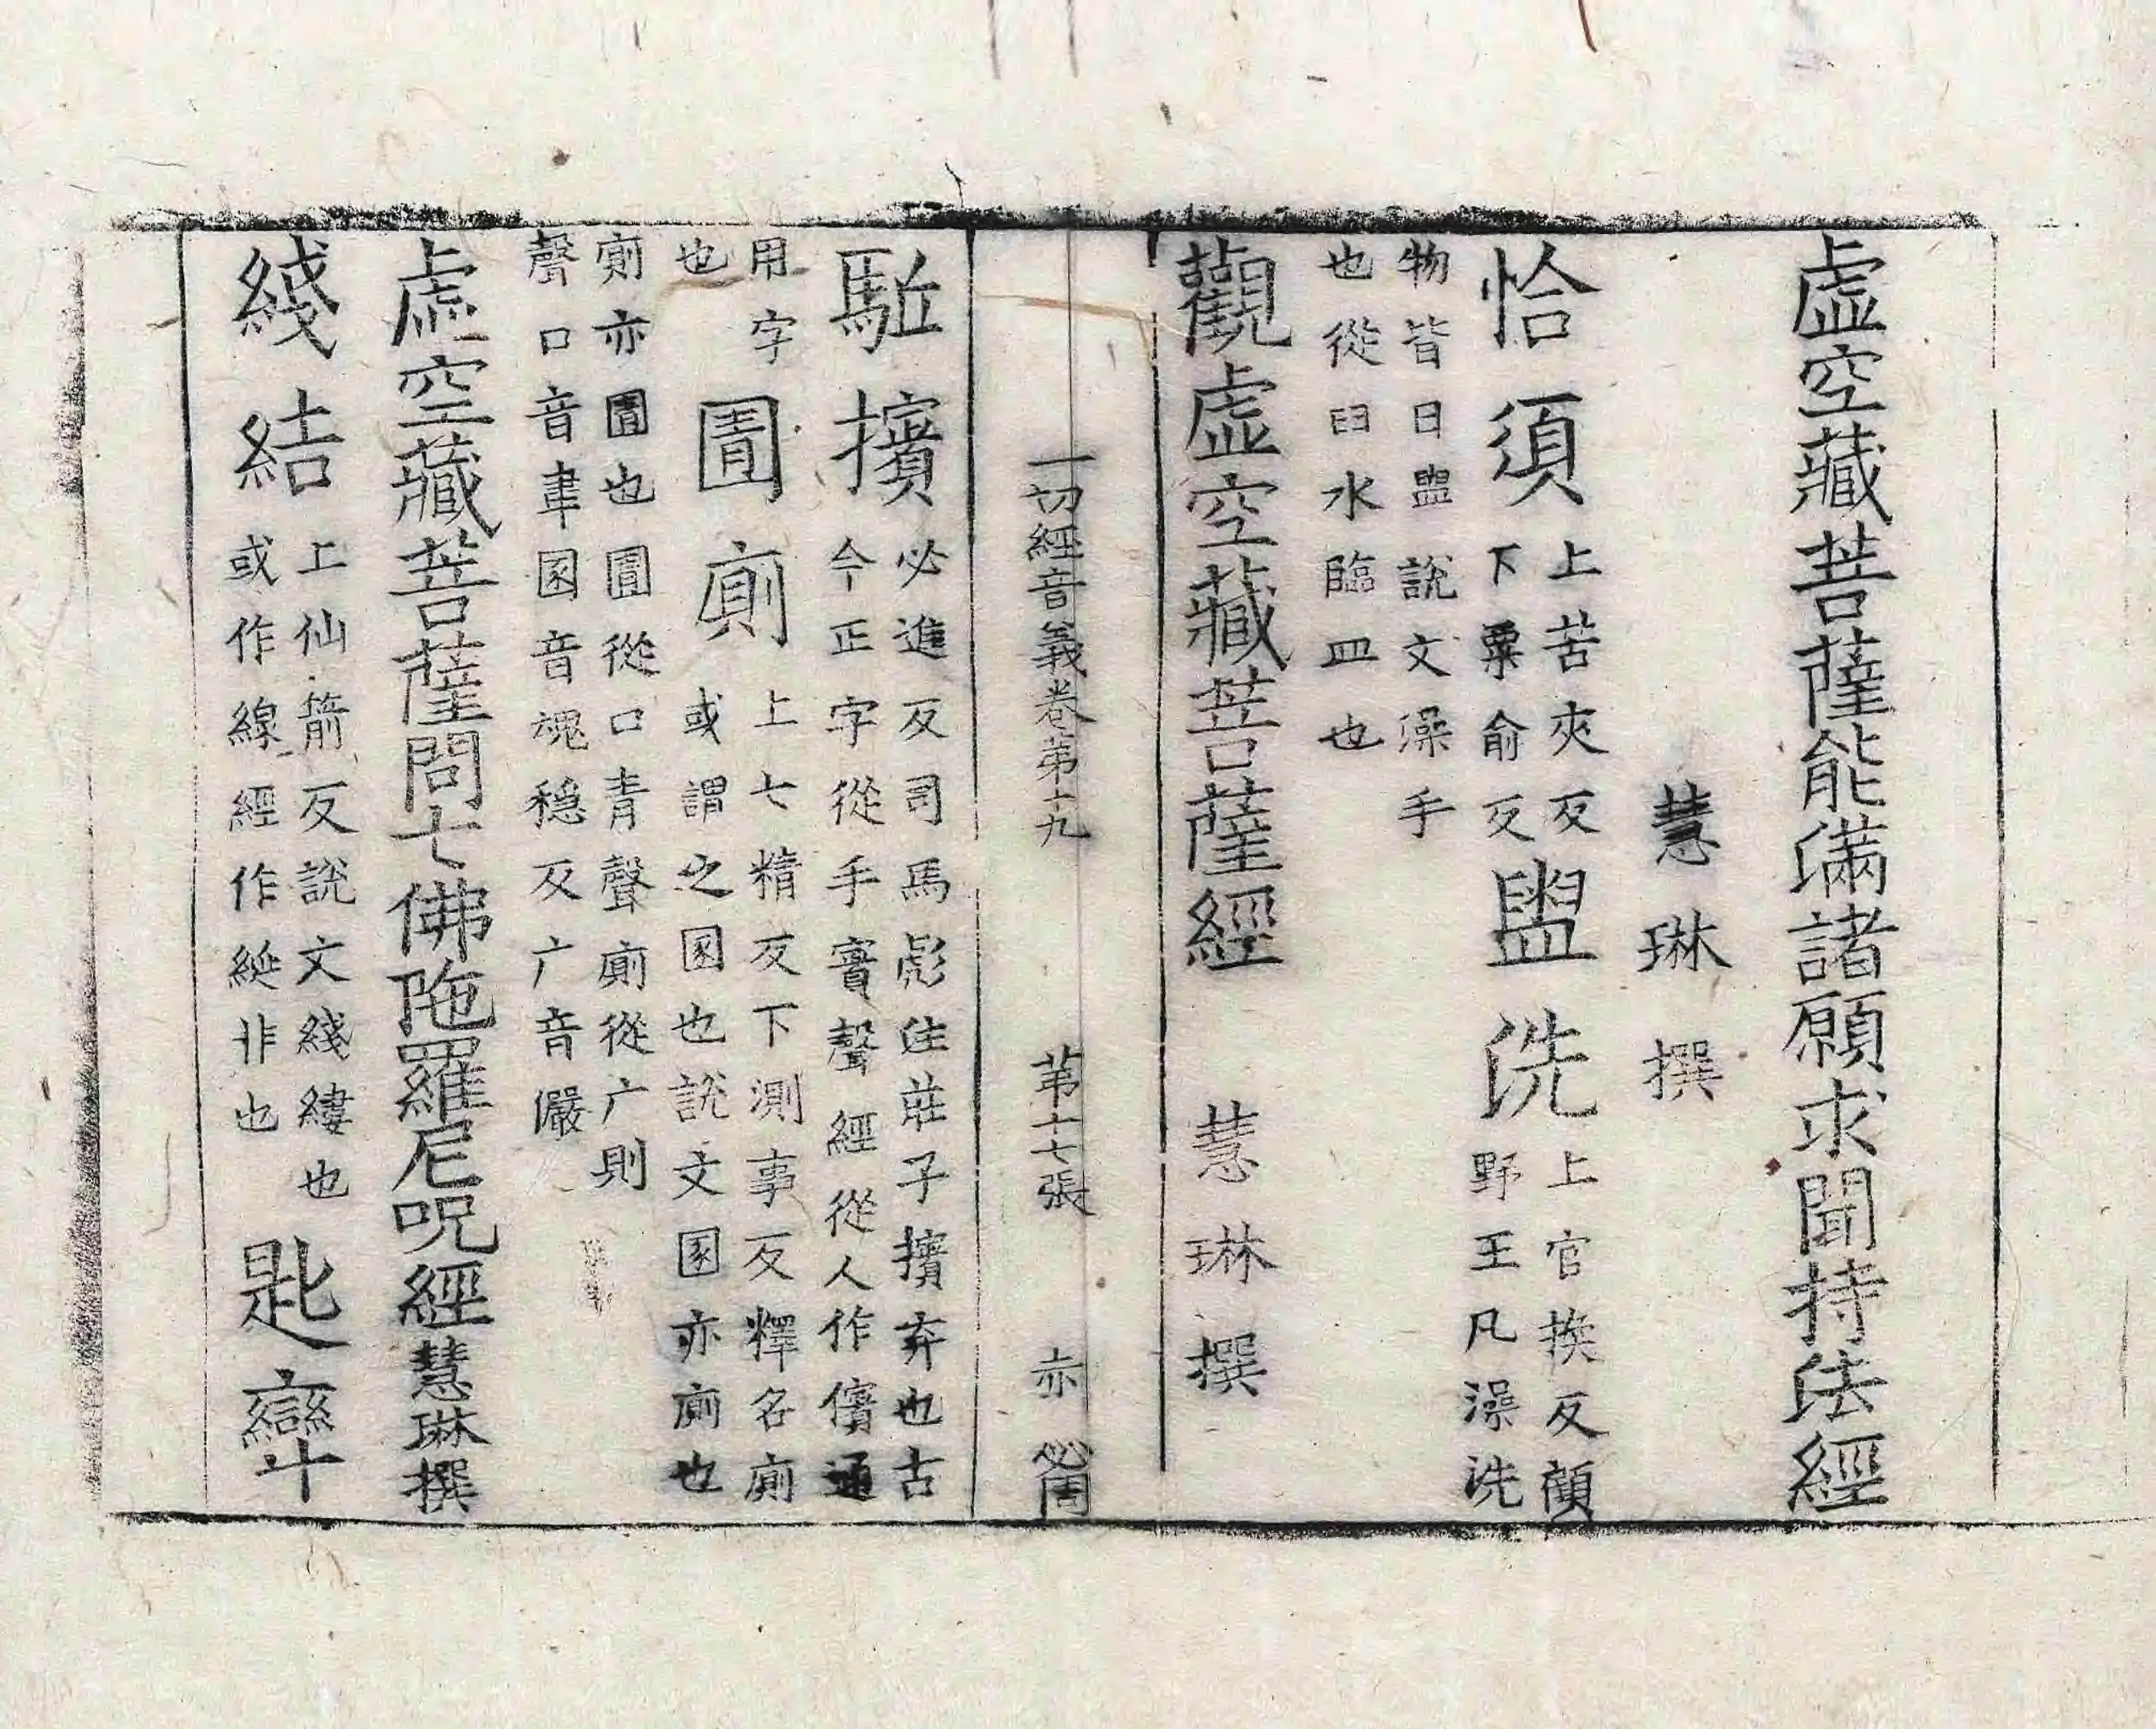 虛空藏菩薩能滿諸願求聞持法經
慧琳撰
恰須上苦夾反下粟俞反盥洗上官換反顧野王凡澡洗
物皆曰盥說文澡手也從臼水臨皿也
觀虛空藏菩薩經 慧琳撰
一切經音義卷第十九 第十七張 赤
駈擯必進反司馬彪注莊子擯弃也古今正字從手賓聲經從人作儐通
用字也圊廁上七精反下測事反釋名廁或謂之圂也說文圂亦廁也
廁亦圊也圊從口青聲廁從广則聲口音韋圂音魂穏反广音儼
虛空藏菩薩問七佛陁羅尼呪經慧琳撰
綫結上仙箭反說文綫縷也或作線經作綖非也匙